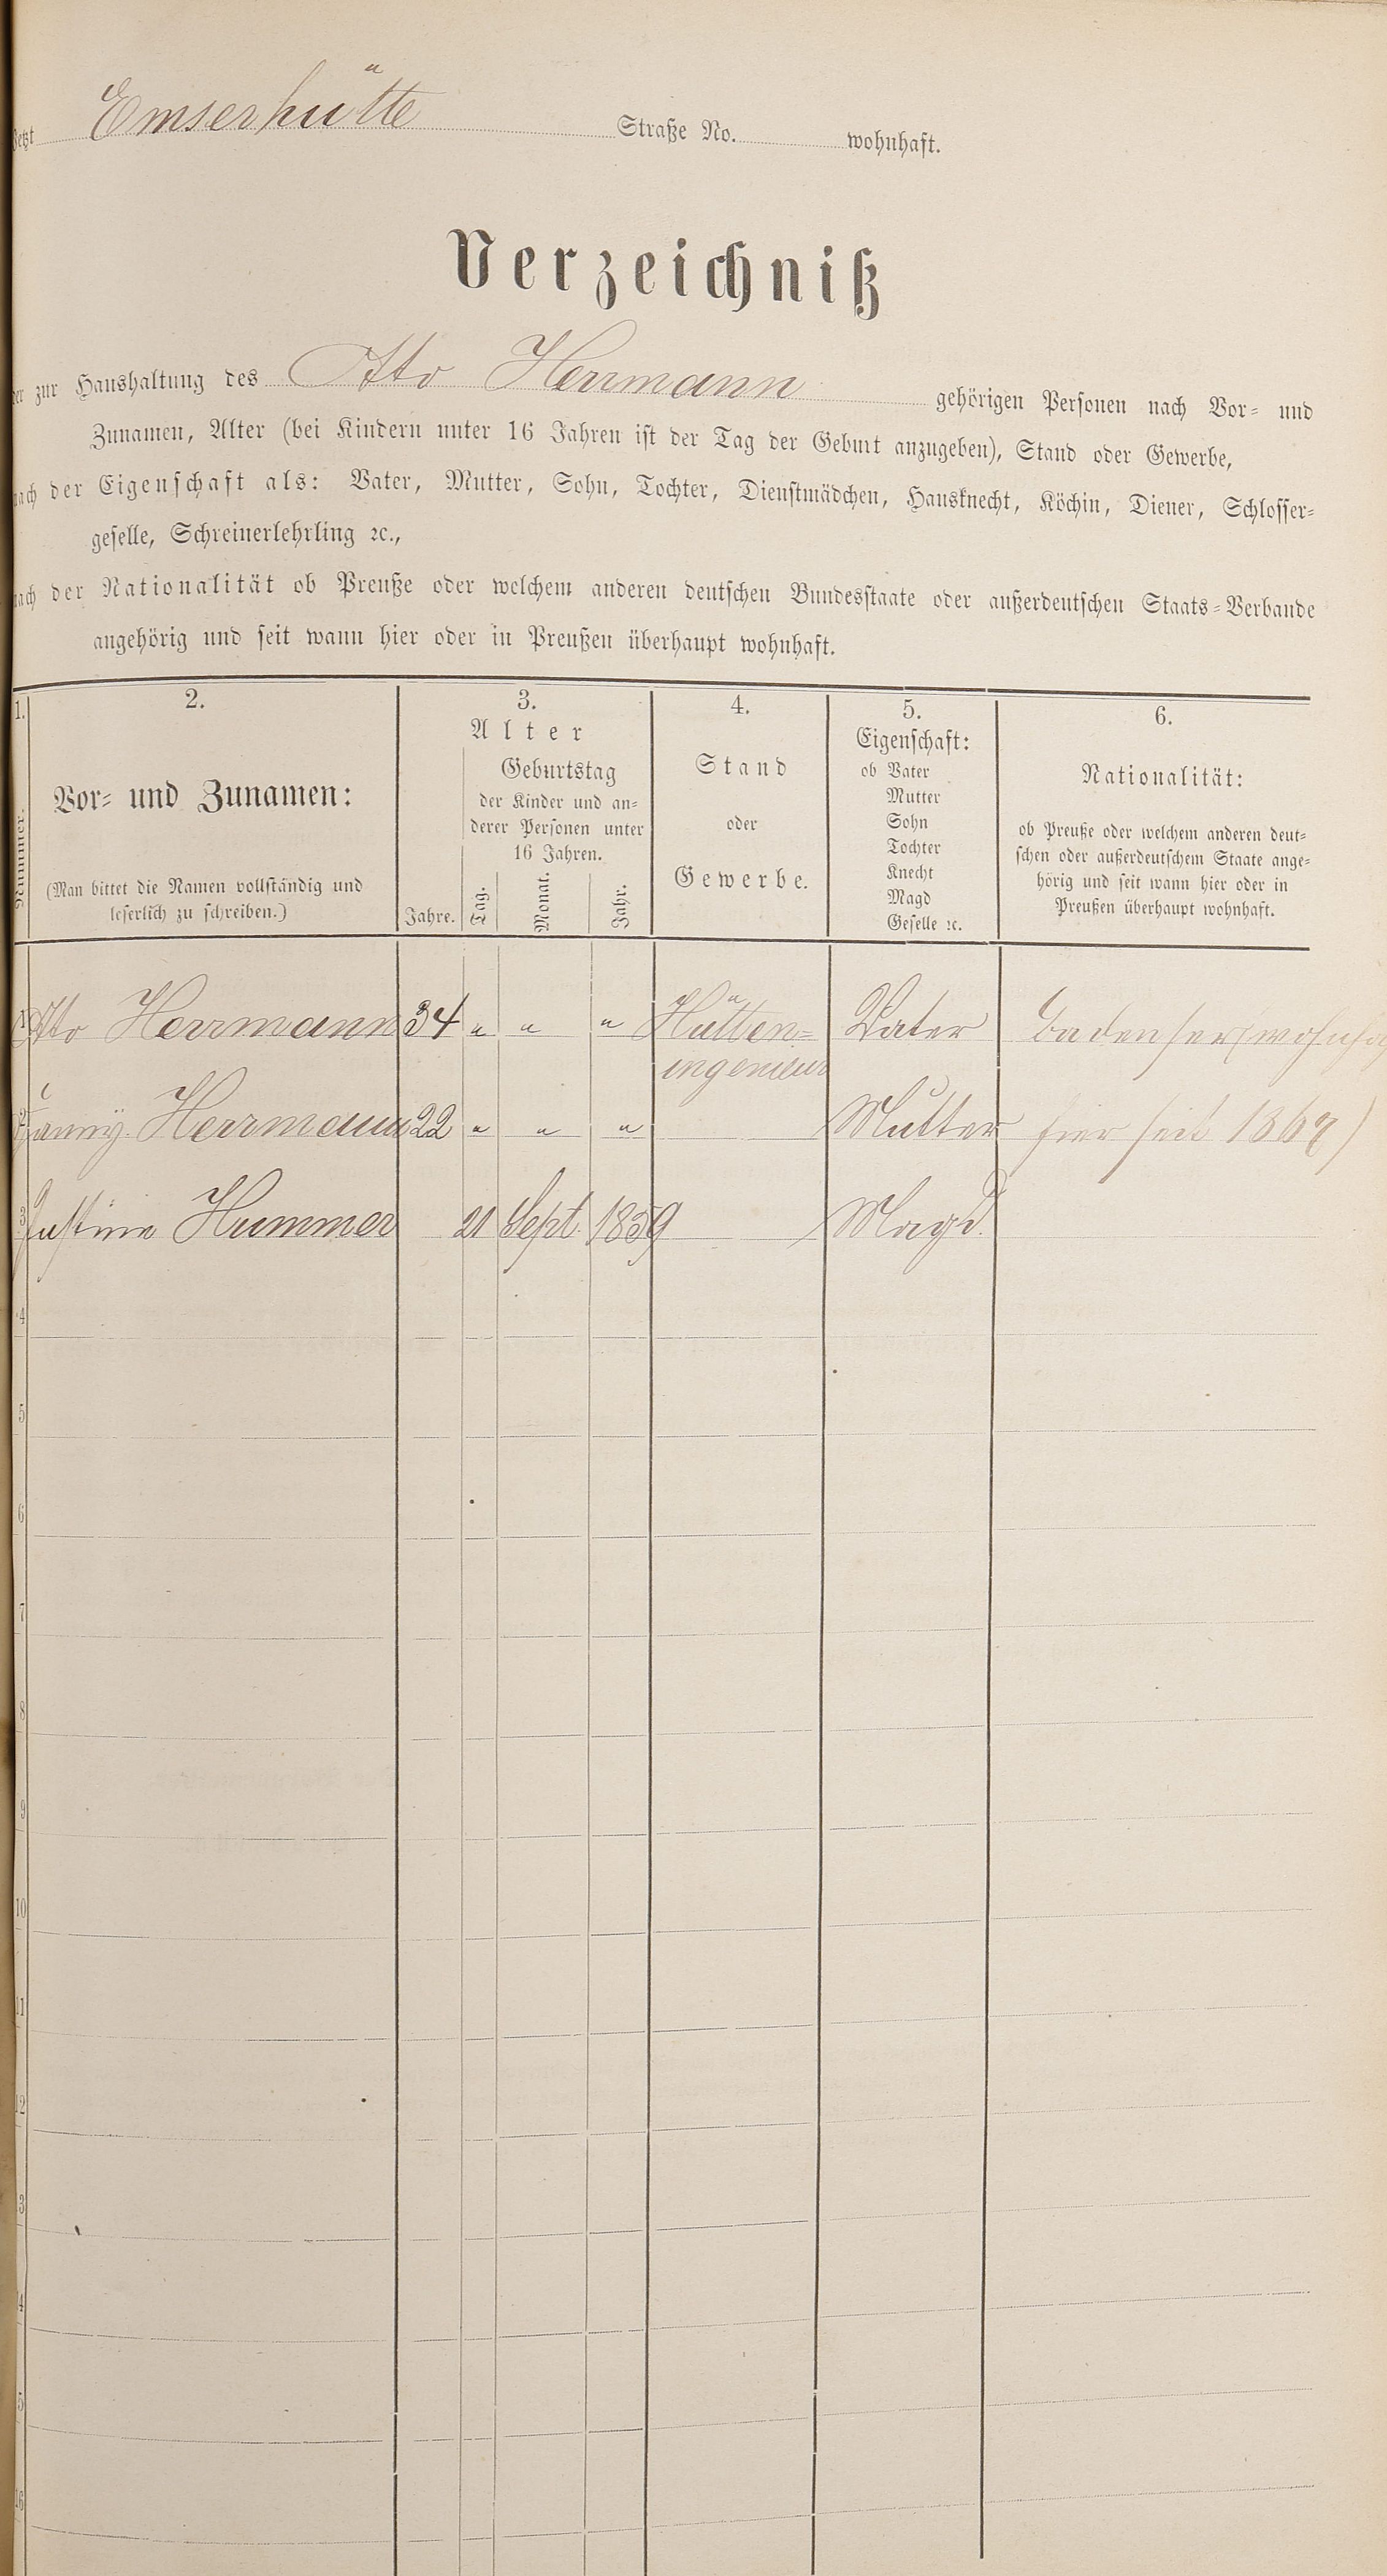 Jetzt Emserhütte Straße No. wohnhaft.
Verzeichniß
der zur Haushaltung des Otto Herrmann gehörigen Personen nach Vor- und
Zunamen, Alter (bei Kindern unter 16 Jahren ist der Tag der Geburt anzugeben), Stand oder Gewerbe,
nach der Eigenschaft als: Vater, Mutter, Sohn, Tochter, Dienstmädchen, Hausknecht, Köchin, Diener, Schlosser-
geselle, Schreinerlehrling ꝛc.,
nach der Nationalität ob Preuße oder welchem anderen deutschen Bundesstaate oder außerdeutschen Staats-Verbande
angehörig und seit wann hier oder in Preußen überhaupt wohnhaft.
1. 2. 3. 4. 5. 6.
Nummer.
Vor- und Zunamen:
(Man bittet die Namen vollständig und
leserlich zu schreiben.)
Alter
Geburtstag
der Kinder und an-
derer Personen unter
16 Jahren.
Jahre. Tag. Monat. Jahr.
Stand
oder
Gewerbe.
Eigenschaft:
ob Vater
Mutter
Sohn
Tochter
Knecht
Magd
Geselle ꝛc.
Nationalität:
ob Preuße oder welchem anderen deut-
schen oder außerdeutschem Staate ange-
hörig und seit wann hier oder in
Preußen überhaupt wohnhaft.
1 Otto Herrmann 34 " " " Hütten- Vater Badenser (wohnhaft
ingenieur
2 Fanny Herrmann 22 " " " Mutter hier seit 1869)
3 Justine Hummer 21 Sept. 1859 Magd.
4
5
6
7
8
9
10
11
12
3
4
5
16